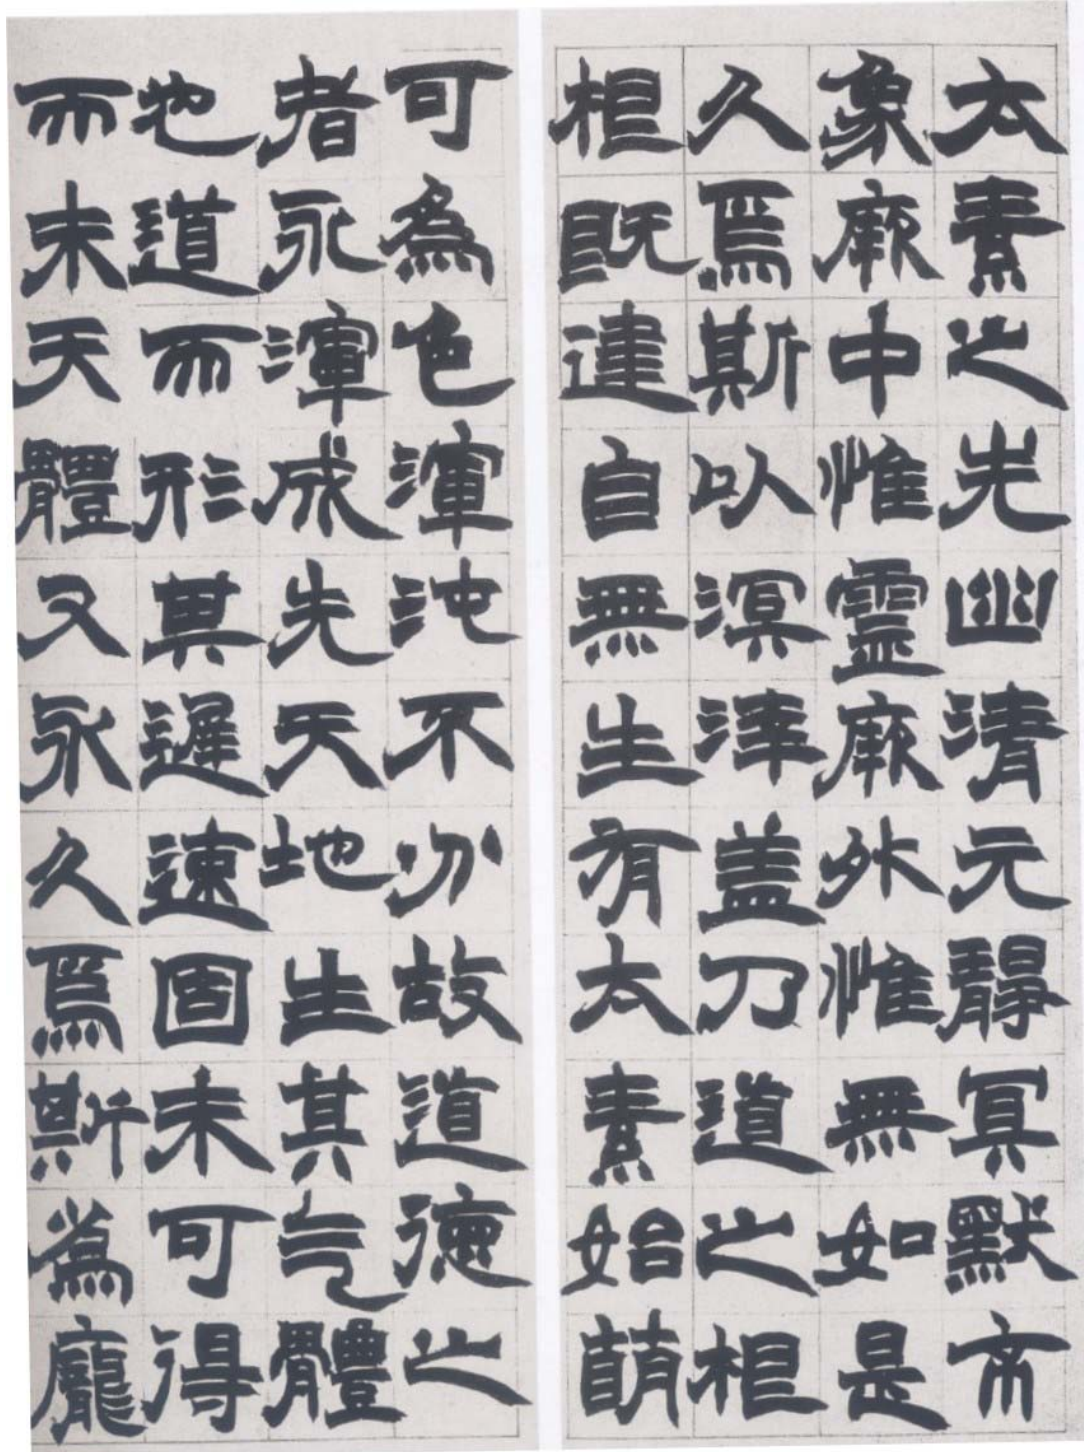 太素之先幽清元靜冥默
象厥中惟靈厥外惟無如是
久焉斯以溟涬盖乃道之根
根既建自無生有太素始萌
可為色渾沌不分故道德之
者永渾成先天地生其气體
也道而形其遲速固未可得
而未天體又永久焉斯為龐